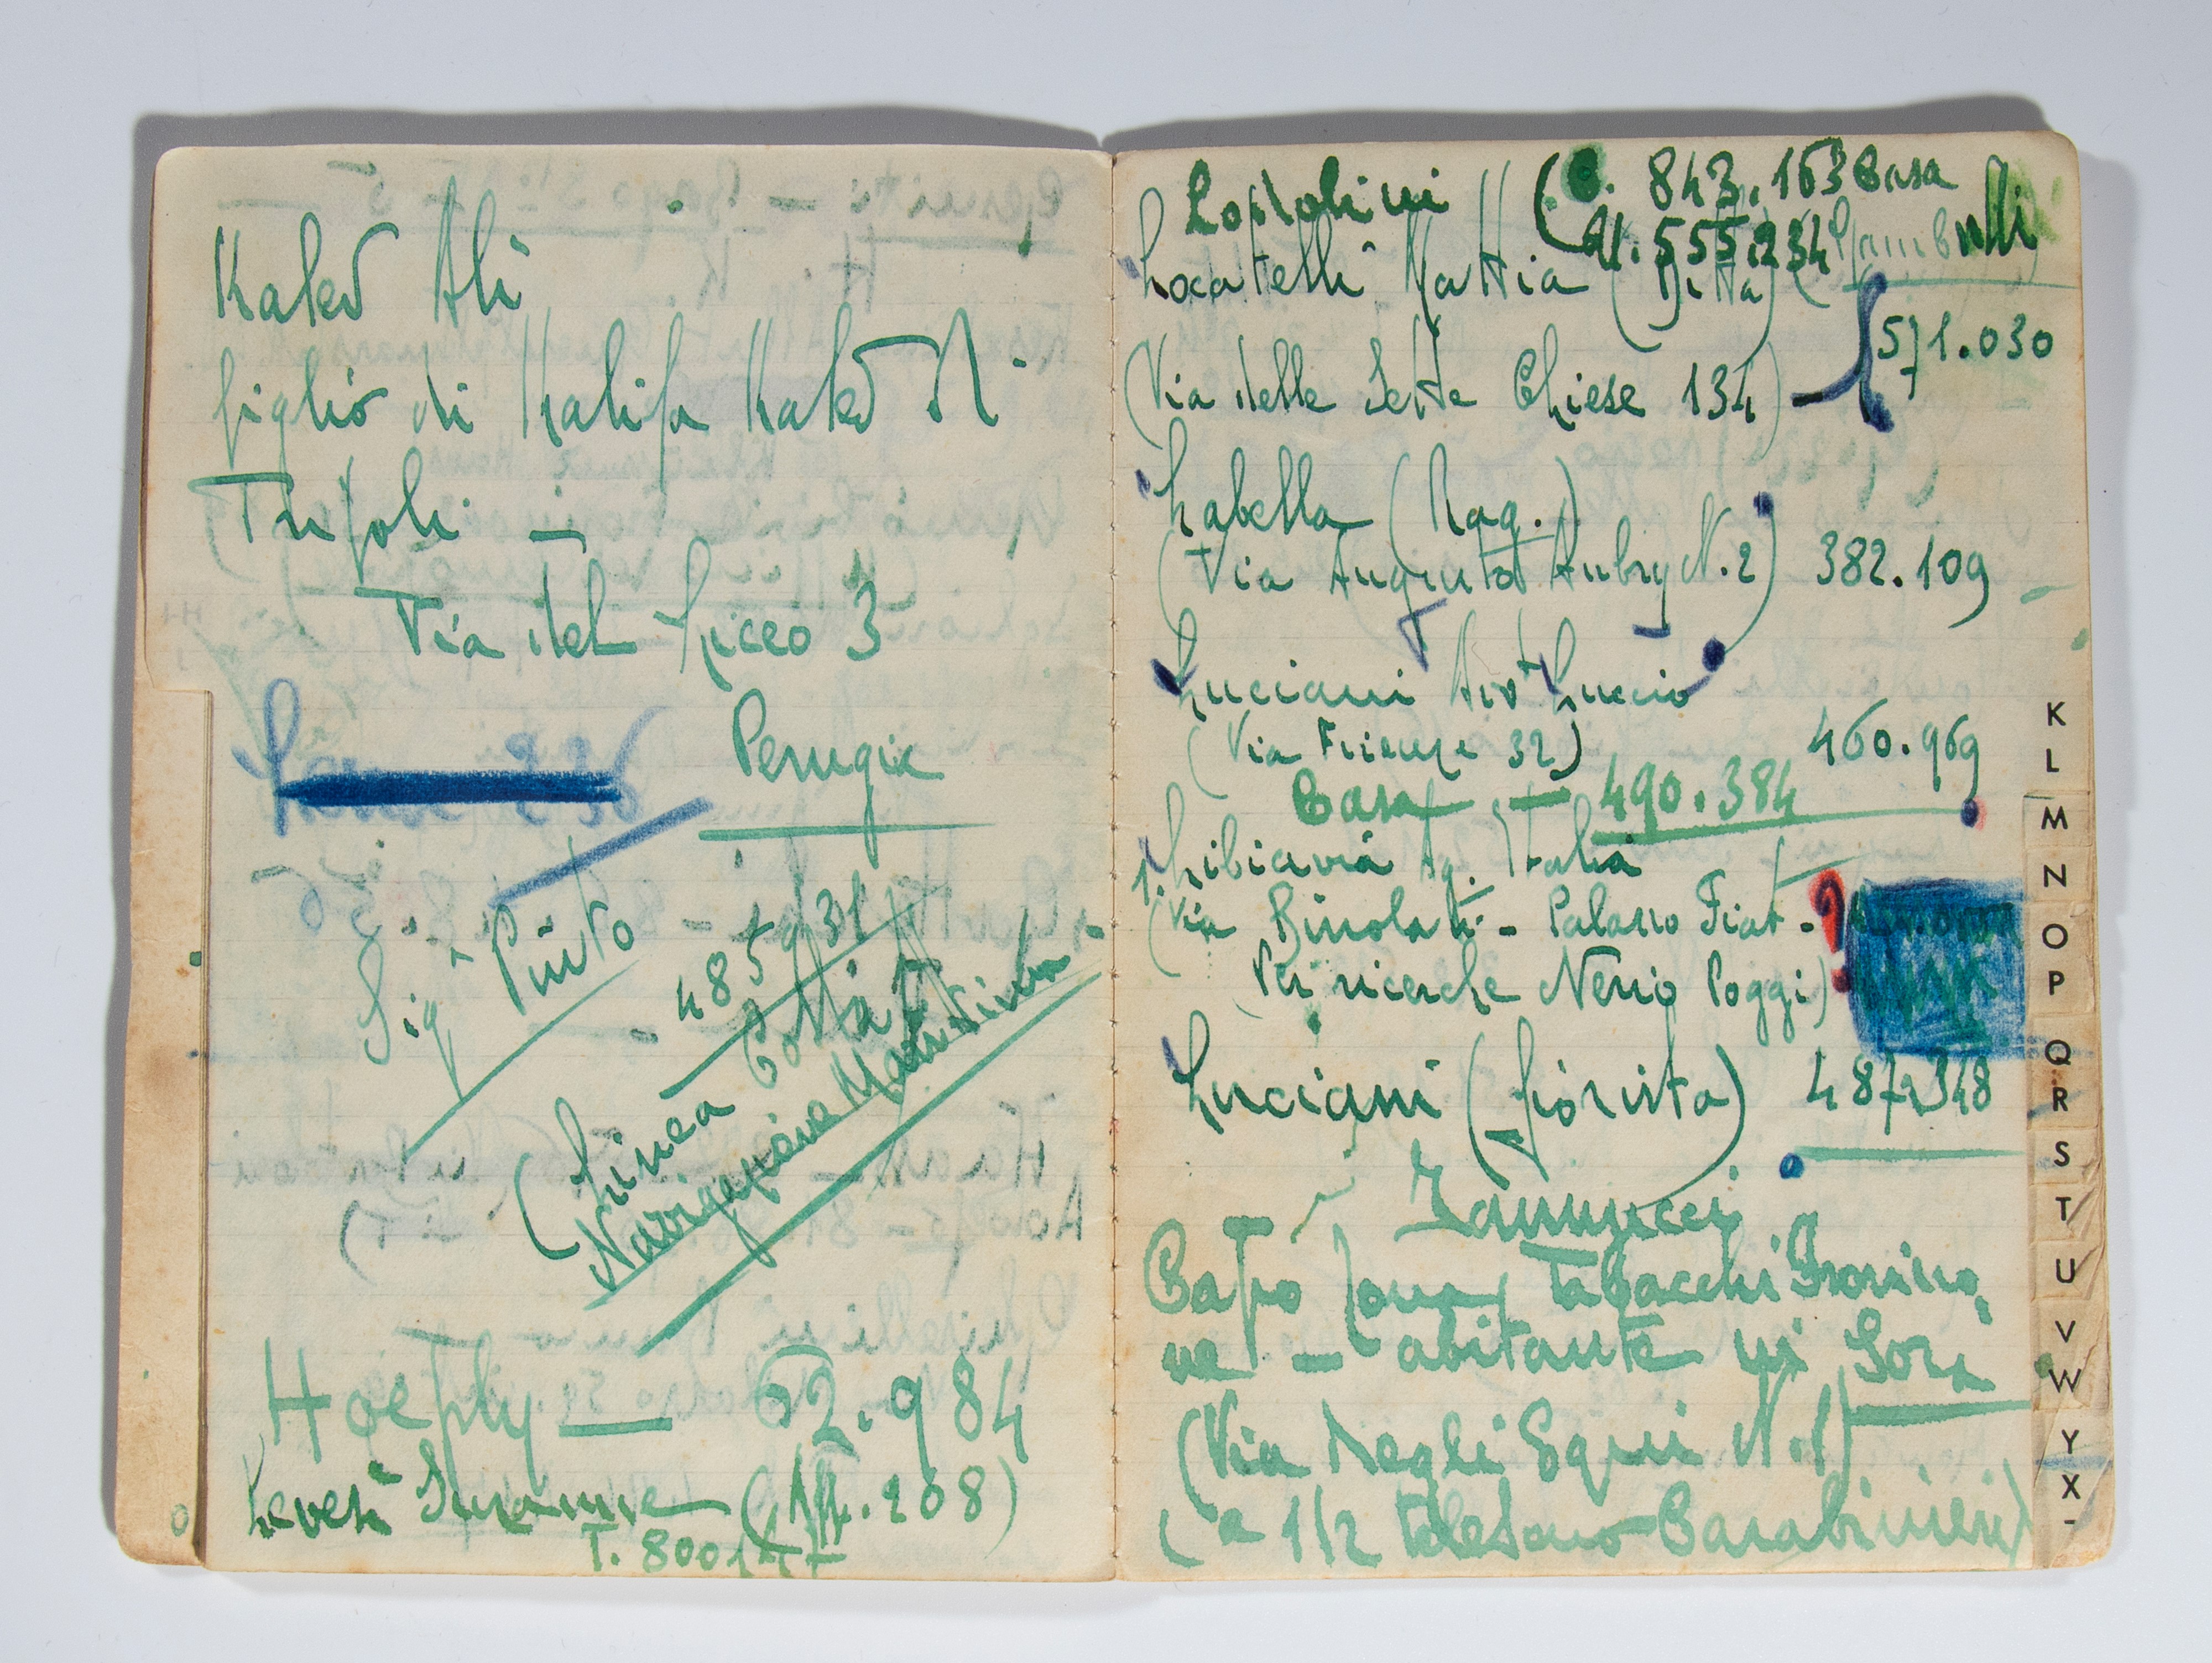 Kaled Alì
figlio di Kalifa Kaled Alì
Tripoli -
Via del Liceo 3
Perugia
Sigr Pinto
485931
(Linea Costa
Navigazione Marittima
Hoeply — 62.984
Leveti Susanne (App. 208)
T. 8001
(C. 843.163 Casa
U. 555.234
Locatelli Mattia (Ditta)
(Via delle Sette Chiese 134) — 571.030
Labella (Rag.)
(Via Augusto Aubry N. 2) 382.109
Luciani Avvt Luccio
(Via Firenze 32) 460.969
Casa — 490.384
Libiavia Ag. Italia
(Via Bissolati - Palazzo Fiat -
Per ricerche Nerio Poggi)
Luciani (fiorista) 487.348
Iannucci
Capo zona tabacchi Frosino,
ne — abitante in Sora
(Via Degli Equi N. 1)
(a 1/2 telefono Carabinieri)
K
L
M
N
O
P
Q
R
S
T
U
V
W
Y
X